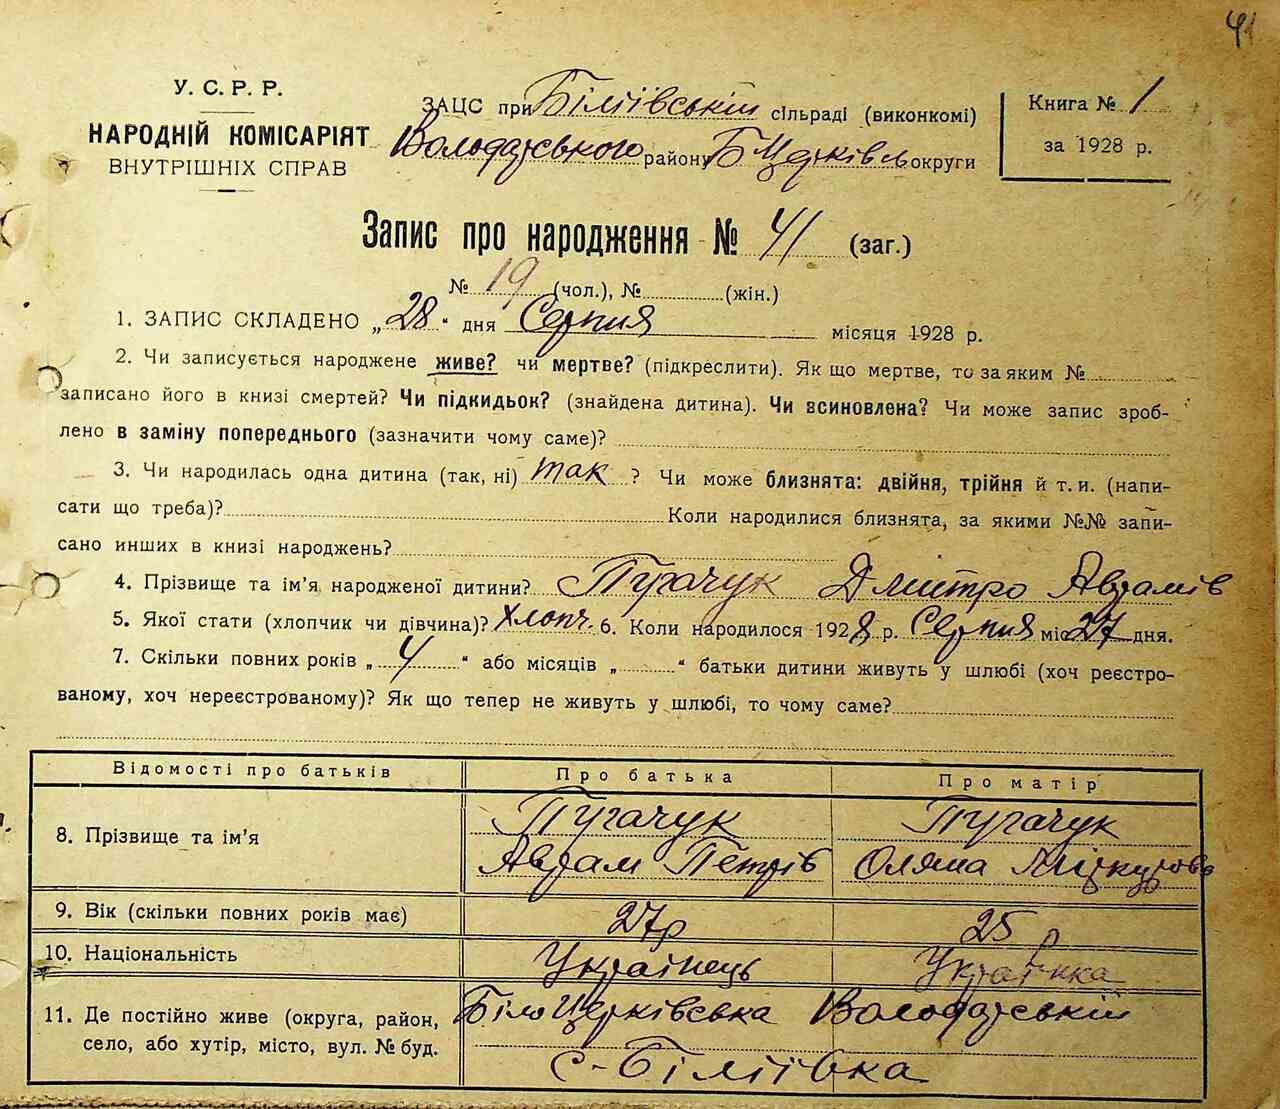 41
У. С. Р. Р.
НАРОДНІЙ КОМІСАРІЯТ
ВНУТРІШНІХ СПРАВ
ЗАЦС при Біліївській сільраді (виконкомі)
Володарського району Б Церківс округи
Книга № 1
за 1928 р.
Запис про народження № 41 (заг.)
№ 19 (чол.), № (жін.)
1. ЗАПИС СКЛАДЕНО „28" дня Серпня місяця 1928 р.
2. Чи записується народжене живе? чи мертве? (підкреслити). Як що мертве, то за яким №
записано його в книзі смертей? Чи підкидьок? (знайдена дитина). Чи всиновлена? Чи може запис зроб-
лено в заміну попереднього (зазначити чому саме)?
3. Чи народилась одна дитина (так, ні) так ? Чи може близнята: двійня, трійня й т. и. (напи-
сати що треба)? Коли народилися близнята, за якими №№ запи-
сано инших в книзі народжень?
4. Прізвище та ім'я народженої дитини? Пугачук Дмитро Аврамів
5. Якої стати (хлопчик чи дівчина)? Хлопч. 6. Коли народилося 1928 р. Серпня міс 27 дня.
7. Скільки повних років „4" або місяців „ " батьки дитини живуть у шлюбі (хоч реєстро-
ваному, хоч нереєстрованому)? Як що тепер не живуть у шлюбі, то чому саме?
Відомості про батьків Про батька Про матір
8. Прізвище та ім'я
Пугачук
Аврам Петрів
Пугачук
Оляна
9. Вік (скільки повних років має) 27р 25 р
10. Національність Українець Українка
11. Де постійно живе (округа, район,
село, або хутір, місто, вул. № буд.
БілоЦерківська Володарський
с-Біліївка